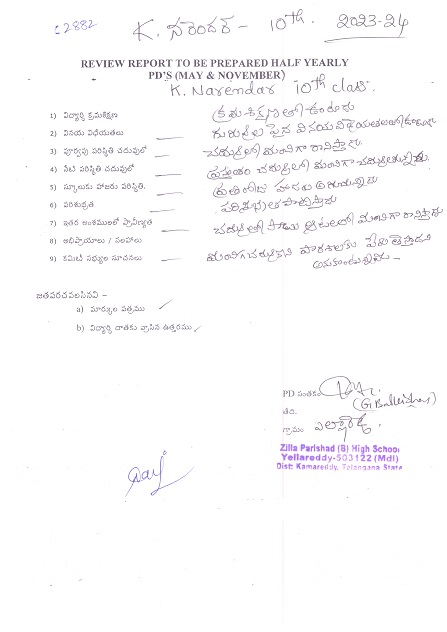 C2882
K. నరేందర్ - 10th. 2023-24
REVIEW REPORT TO BE PREPARED HALF YEARLY
PD'S (MAY & NOVEMBER)
K. Narendar 10th class.
1) విద్యార్థి క్రమశిక్షణ క్రమశిక్షణతో ఉంటాడు
2) వినయ విధేయతలు గురువుల పైన వినయవిధేయతలతో
3) పూర్వపు పరిస్థితి చదువులో చదువులో మంచిగా రాణిస్తాడు
4) నేటి పరిస్థితి చదువులో ప్రస్తుతం చదువులో మంచిగా
5) స్కూలుకు హాజరు పరిస్థితి. ప్రతిరోజు హాజరు
6) పరిశుభ్రత
7) ఇతర అంశములలో ప్రావీణ్యత చదువుతో పాటు ఆటలలో మంచిగా రాణిస్తాడు
8) అభిప్రాయాలు / సలహాలు
9) కమిటీ సభ్యుల సూచనలు పాఠశాలకు పేరు
జతపరచవలసినవి –
a) మార్కుల పత్రము
b) విద్యార్థి దాతకు వ్రాసిన ఉత్తరము
PD సంతకం
తేది.
గ్రామం
Zilla Parishad (B) High School
Yellareddy-503122 (Mdl)
Dist: Kamareddy, Telangana State